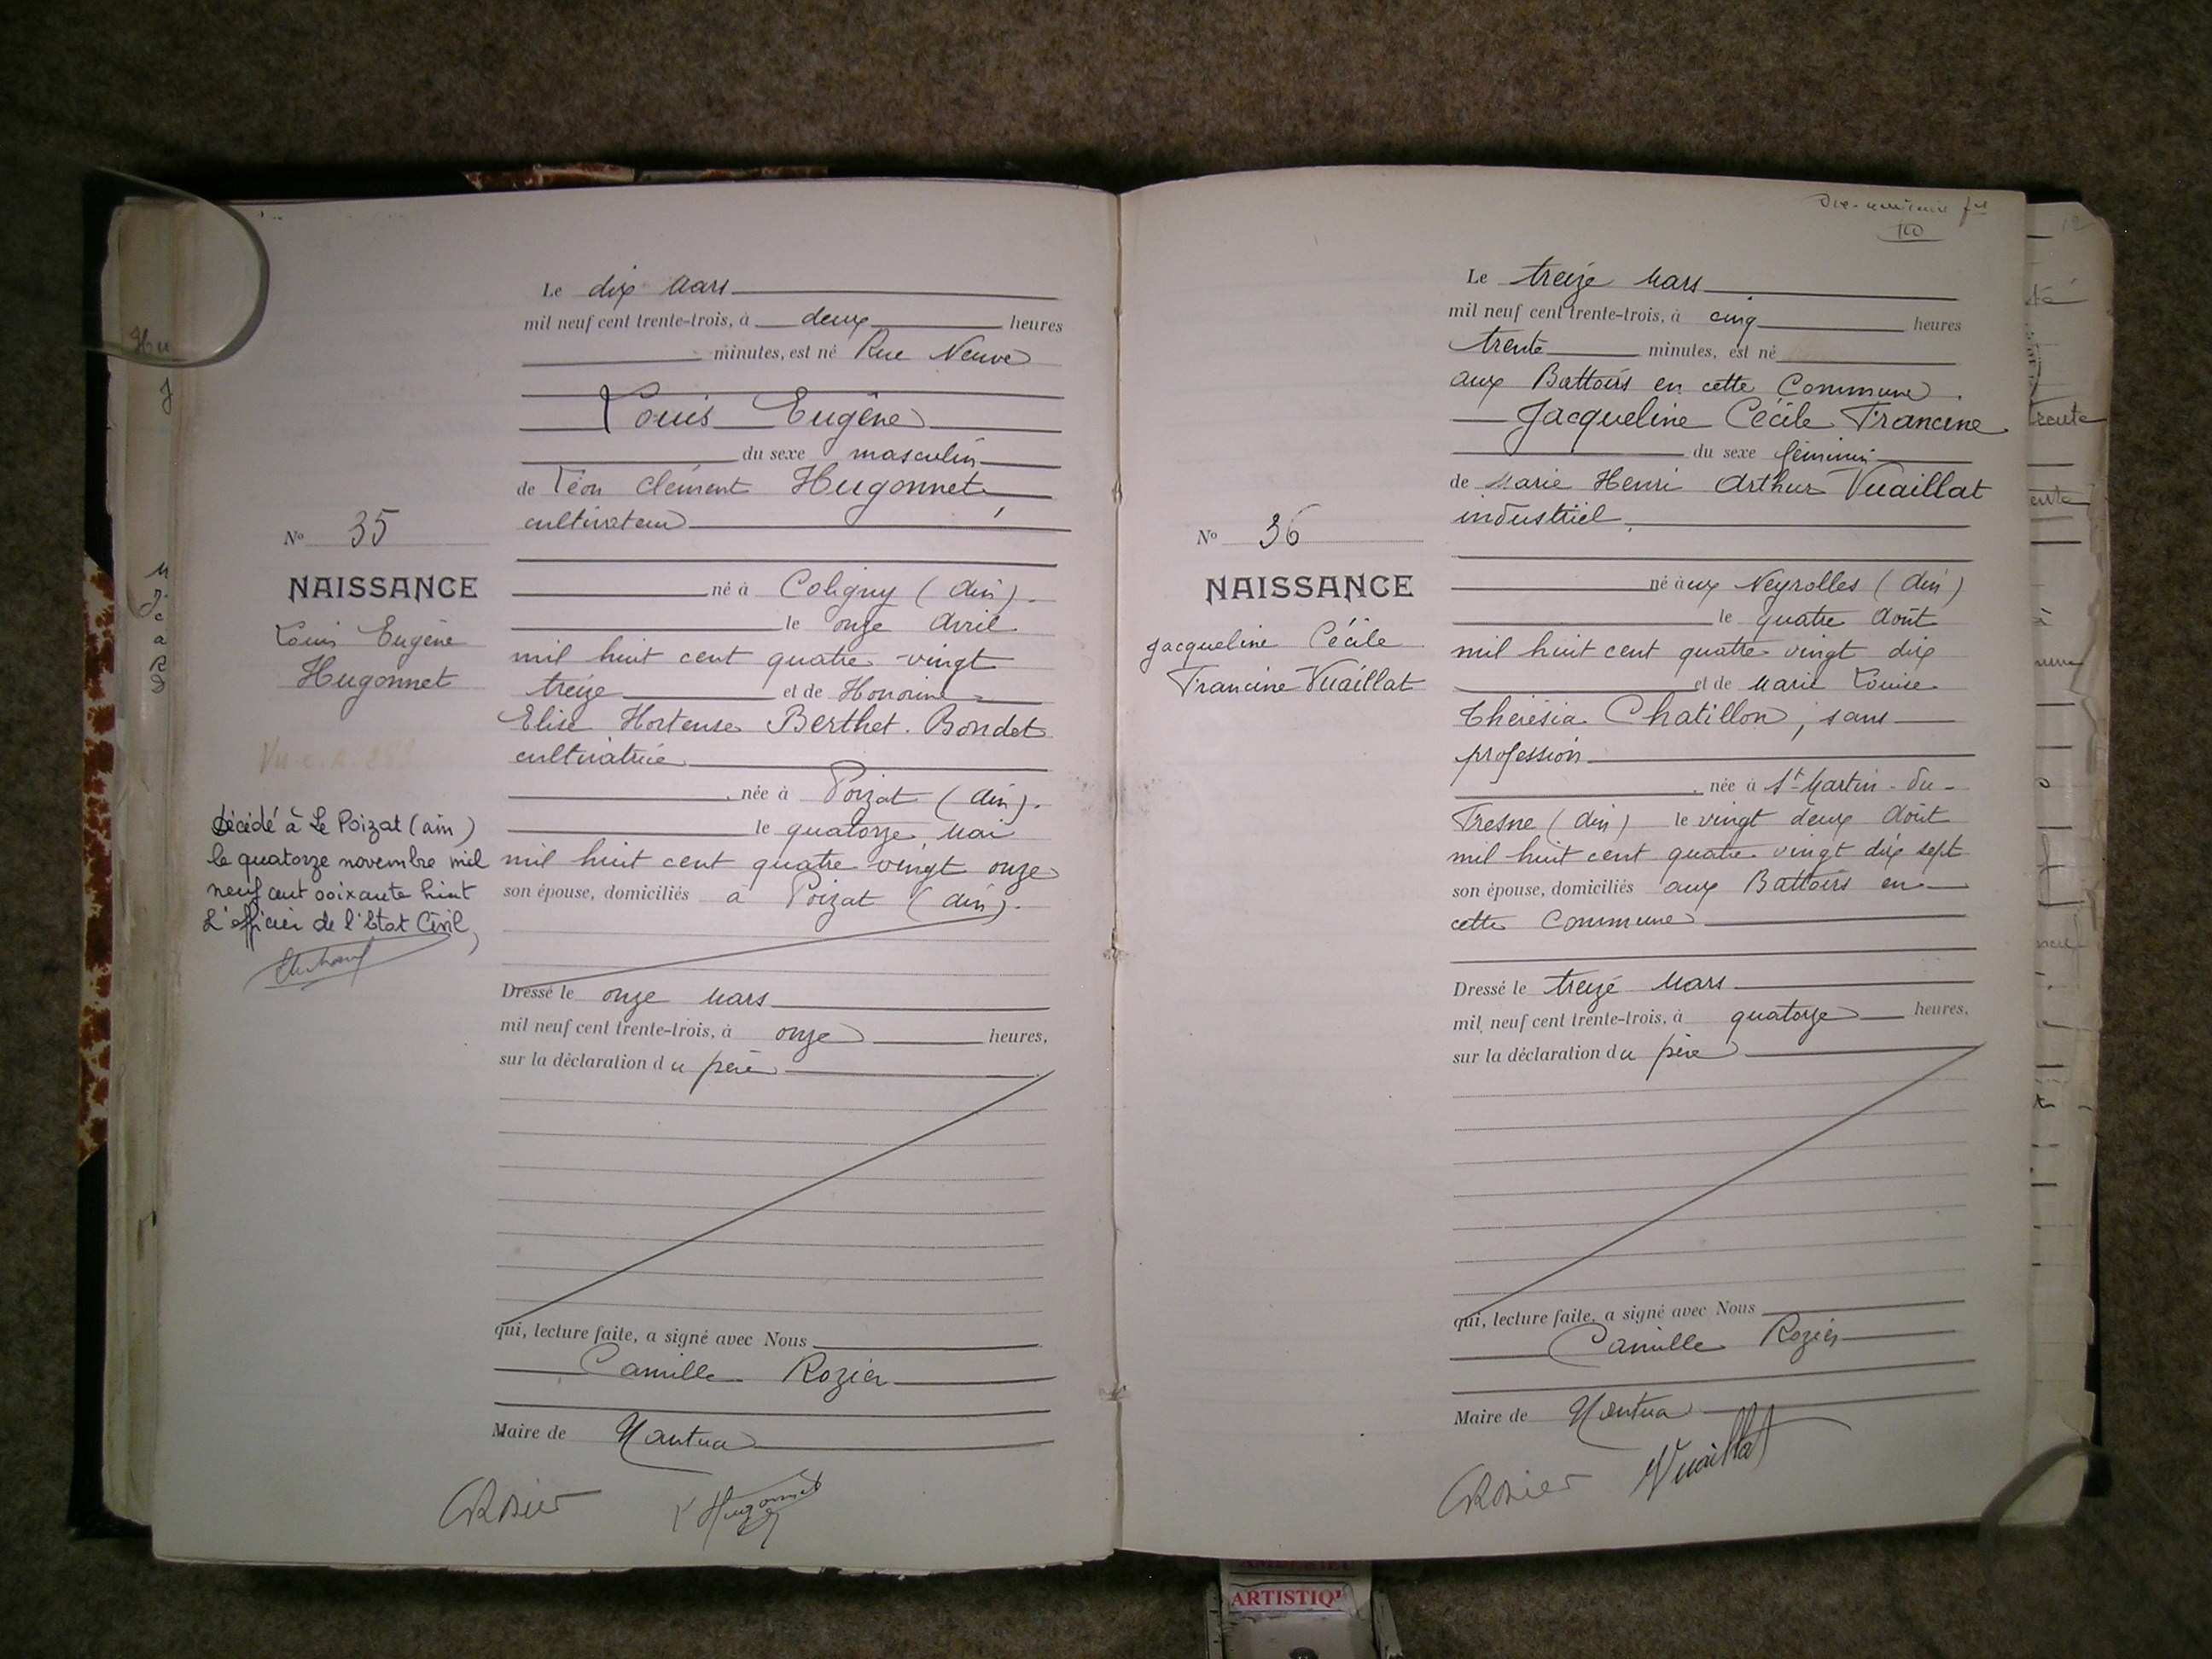 Le dix Mars
mil neuf cent trente-trois, à deux heures
minutes, est né Rue Neuve
Louis Eugène
du sexe masculin
de Léon Clément Hugonnet
cultivateur
No 35
NAISSANCE
Louis Eugène
Hugonnet
né à Coligny (Ain).
le onze Avril
mil huit cent quatre-vingt
treize et de Honorine
Elise Hortense Berthet-Bondet
cultivatrice
née à Poizat (Ain).
le quatorze Mai
mil huit cent quatre vingt onze
son épouse, domiciliés à Poizat (Ain).
Décédé à Le Poizat (Ain)
le quatorze novembre mil
neuf cent soixante huit
L'officier de l'Etat Civil,
Dressé le onze Mars
mil neuf cent trente-trois, à onze heures,
sur la déclaration du père
qui, lecture faite, a signé avec Nous
Camille Rozier
Maire de Nantua
CRozier
L Hugonnet
Le treize Mars
mil neuf cent trente-trois, à cinq heures
trente minutes, est né
aux Battoirs en cette Commune.
Jacqueline Cécile Francine
du sexe féminin
de Marie Henri Arthur Vuaillat
industriel
No 36
NAISSANCE
Jacqueline Cécile
Francine Vuaillat
né aux Neyrolles (Ain)
le quatre Août
mil huit cent quatre vingt dix
et de Marie Louise
Thérésia Chatillon, sans
profession
née à St-Martin-du-
Fresne (Ain) le vingt deux Août
mil huit cent quatre vingt dix sept
son épouse, domiciliés aux Battoirs en
cette Commune
Dressé le treize Mars
mil neuf cent trente-trois, à quatorze heures,
sur la déclaration du père
qui, lecture faite, a signé avec Nous
Camille Rozier
Maire de Nantua
CRozier
Vuaillat
ARTISTIQ